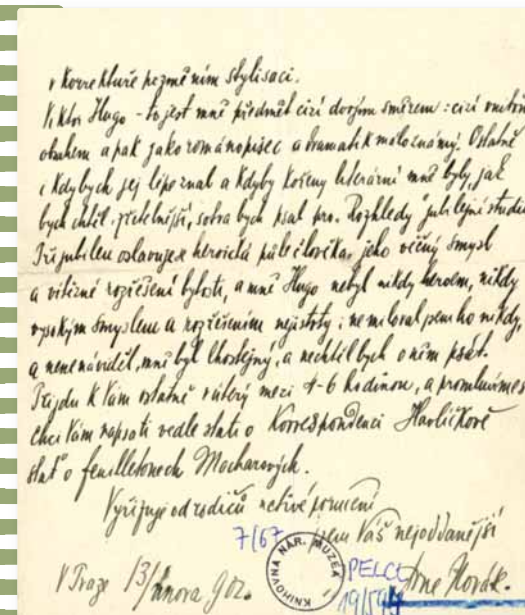 v korrektuře nezměním stylisaci.
Viktor Hugo - to jest mně předmět cizí dvojím směrem: cizí vnitřním
obsahem a pak jako románopisec a dramatik málo známý. Ostatně
i kdybych jej lépe znal a kdyby kořeny literární mně byly, jak
bych chtěl, zřetelnější, sotva bych psal pro "Rozhledy" jubilejní studii.
Při jubileu oslavuje se heroická půle člověka, jeho věčný smysl
a vítězné rozřešení bytosti, a mně Hugo nebyl nikdy heroem, nikdy
vysokým smyslem a rozřešením nejistoty; nemiloval jsem ho nikdy,
a nenenáviděl, mně byl lhostejný, a nechtěl bych o něm psát.
Přijdu k Vám ostatně v úterý mezi 4-6 hodinou, a promluvíme si
chci Vám napsati vedle stati o Korrespondenci Havlíčkově
stať o feuilletonech Macharových.
Vyřizuje od rodičů uctivé poručení
jsem Váš nejoddanější
7/67
KNIHOVNA NÁR. MUZEA
PELCL
V Praze 13/února 902.
Arne Novák.